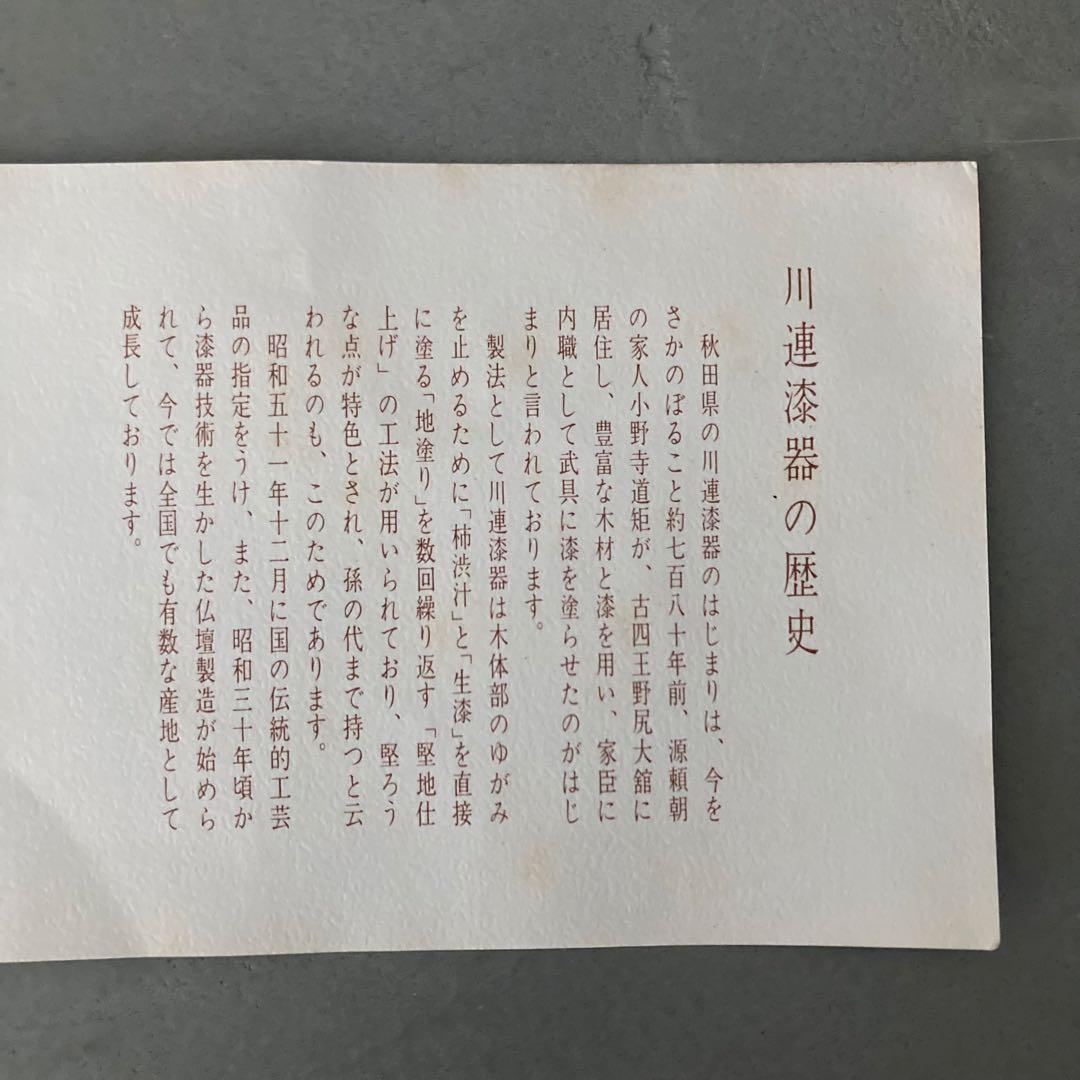 川連漆器の歴史
秋田県の川連漆器のはじまりは、今を
さかのぼること約七百八十年前、源頼朝
の家人小野寺道矩が、古四王野尻大舘に
居住し、豊富な木材と漆を用い、家臣に
内職として武具に漆を塗らせたのがはじ
まりと言われております。
製法として川連漆器は木体部のゆがみ
を止めるために「柿渋汁」と「生漆」を直接
に塗る「地塗り」を数回繰り返す「堅地仕
上げ」の工法が用いられており、堅ろう
な点が特色とされ、孫の代まで持つと云
われるのも、このためであります。
昭和五十一年十二月に国の伝統的工芸
品の指定をうけ、また、昭和三十年頃か
ら漆器技術を生かした仏壇製造が始めら
れて、今では全国でも有数な産地として
成長しております。